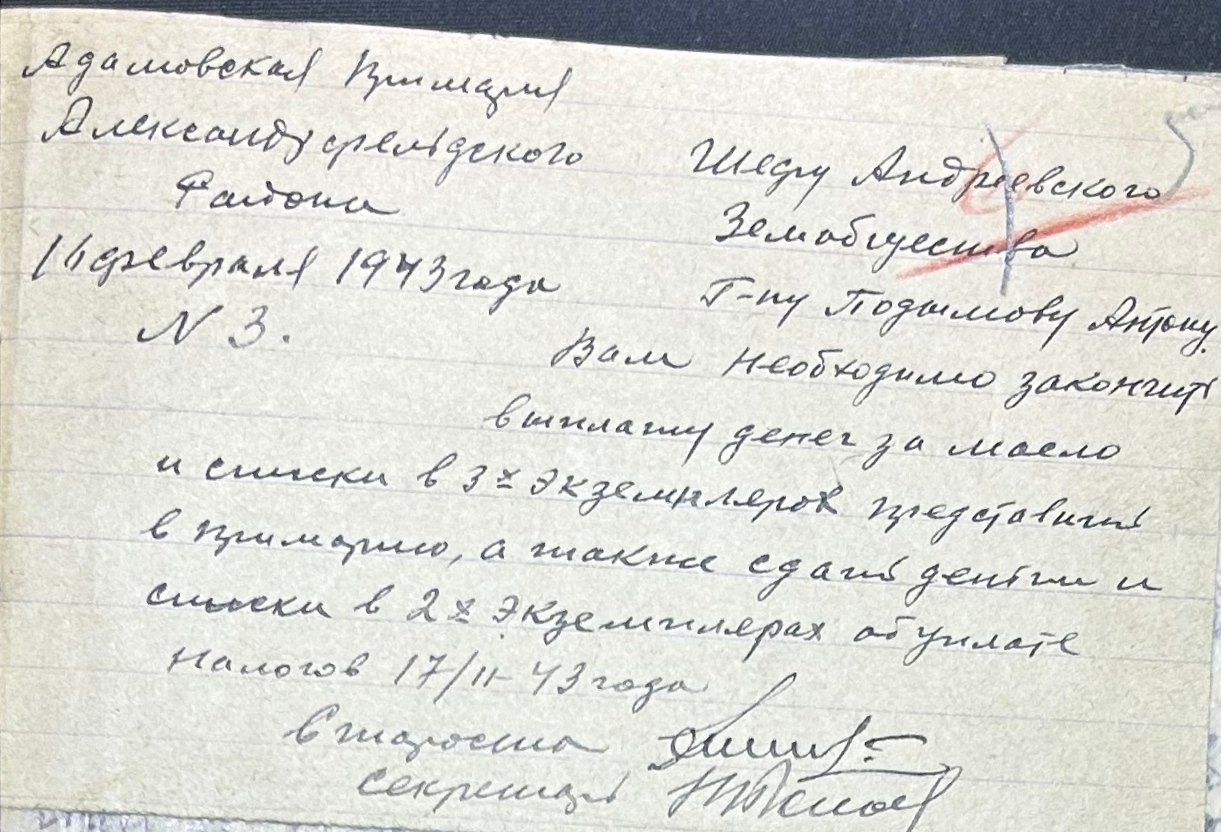 Адамовская Примария
Александрфельдского
Района
16 февраля 1943 года
N 3.
Шефу Андреевского
Земобщества
Г-ну Подымову Антону.
Вам необходимо закончить
выплату денег за масло
и списки в 3х экземплярах представить
в примарию, а также сдать деньги и
списки в 2х экземплярах об уплате
налогов 17/II-43 года
Староста
секретарь